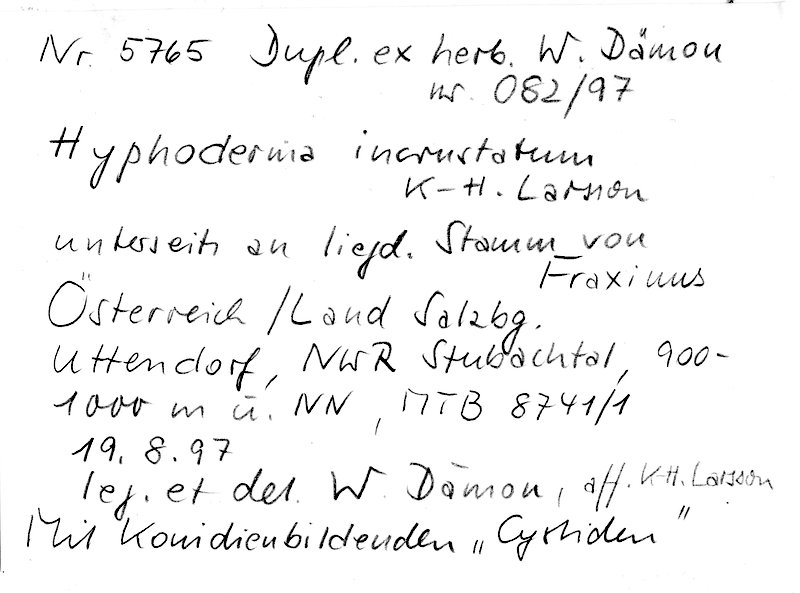 Nr. 5765 Dupl. ex herb. W. Dämon
nr. 082/97
Hyphoderma incrustatum
K-H. Larsson
unterseits an liegd. Stamm von
Fraxinus
Österreich /Land Salzbg.
Uttendorf, NWR Stubachtal, 900-
1000 m ü. NN, MTB 8741/1
19. 8. 97
leg. et det. W. Dämon, aff. K-H. Larsson
Mit Konidienbildenden „Cystiden"